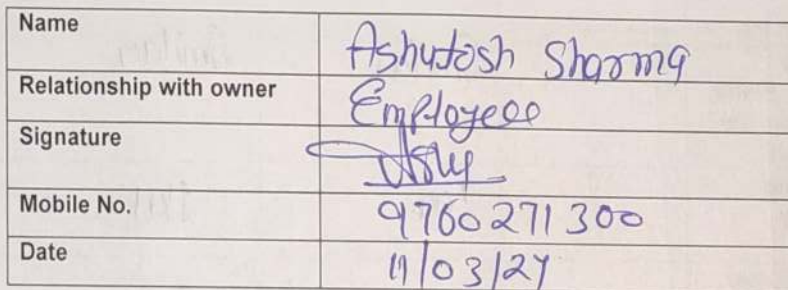 Name Ashutosh Sharma
Relationship with owner Employee
Signature
Mobile No. 9760271300
Date 11/03/24